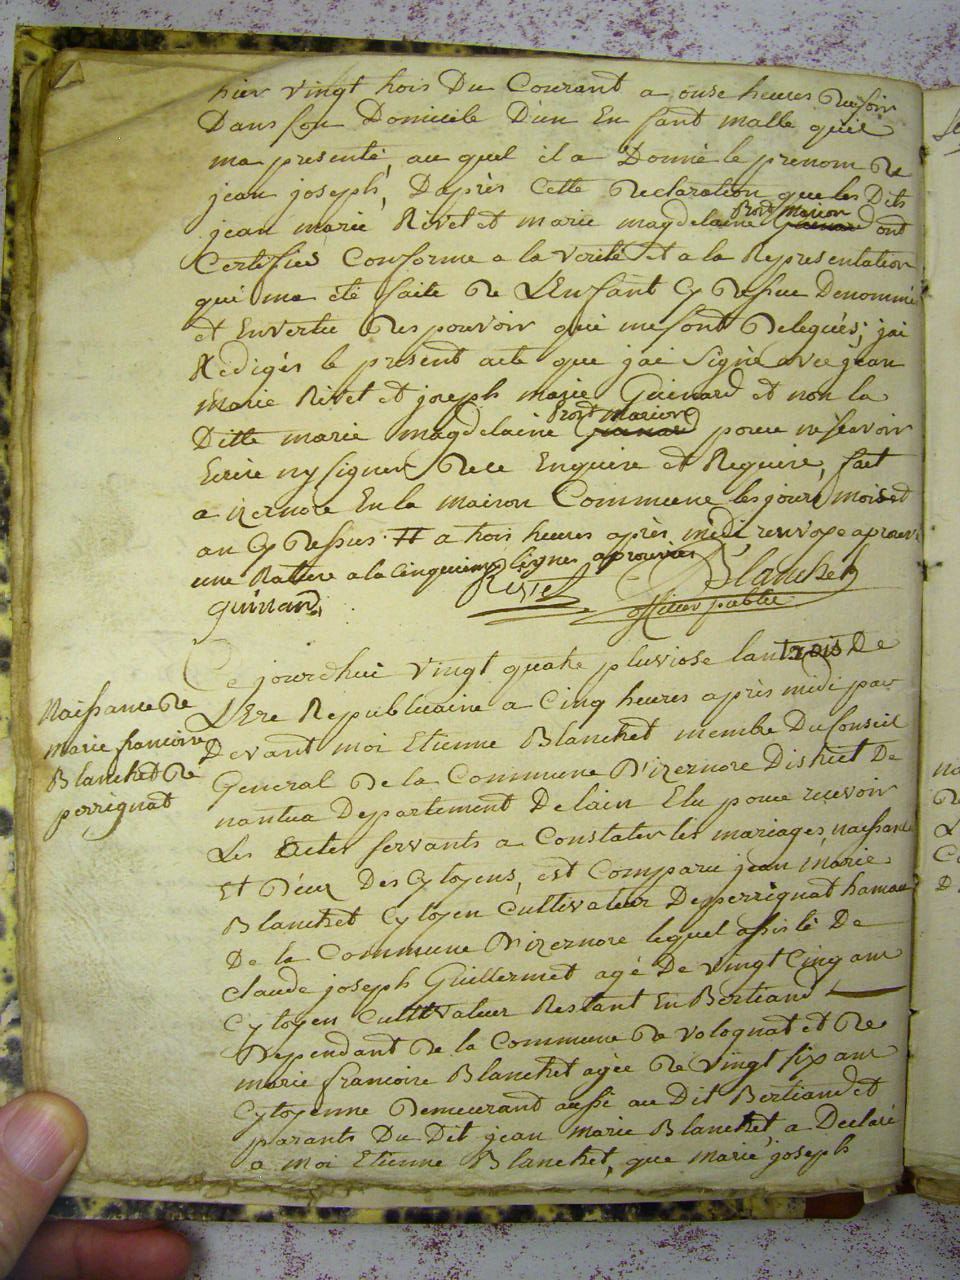 hier vingt trois Du Courant a onse heures Du soir
Dans son Domicile D'un En fant malle qu'il
ma presenté, au quel il a Donné le prenom De
jean joseph, D'après Cette Declaration que les Dits
jean marie Rivet et marie magdelaine Guinard dont
Certifiés Conforme a la Verité Et a la Representation
qui ma été faite De L'Enfant Cy Dessue Denommé
et Envertu Des pouvoir qui me sont Delegués; jai
Redigés le present acte que jai Signé avec jean
Marie Rivet et joseph marie Guinard et non la
Ditte marie magdelaine Guinard pour ne scavoir
Ecrire ny signer De ce Enquire et Require, fait
a izernore En la maison Commune les jours mois et
an Cy Dessus # a trois heures après midi renvoye aprouvé
une Rature a la Cinquieme lignes aprouvée
Rivet Blanchet
Guinard officier public
Ce jourdhui vingt quatre pluviose lan trois De
L'Ere Republicaine a Cinq heures après midi par
Naissance De
marie francoise
Blanchet De
perrignat
Devant moi Etienne Blanchet membre Du Conseil
General De la Commune D'izernore District De
nantua Departement De lain Elu pour recevoir
Les Actes servants a Constater les mariages, naissance
Et Déces Des Cytoyens, est Comparu jean marie
Blanchet Cytoyen Cultivateur De perrignat hamau
De la Commune D'izernore lequel assisté De
Claude joseph Guillermet agé De vingt Cinq ans
Cytoyen Cultivateur Restant En Bertiand
Dependant De la Commune De volognat et De
marie francoise Blanchet agée De vingt six ans
Cytoyenne Demeurant aussi au Dit Bertiand et
parants Du Dit jean marie Blanchet a Declaré
a moi Etienne Blanchet, que marie joseph